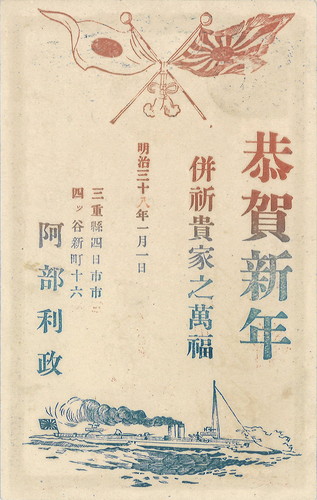 恭賀新年
併祈貴家之萬福
明治三十八年一月一日
三重縣四日市市
四ッ谷新町十六
阿部利政